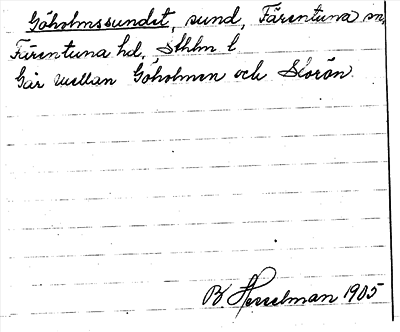 Göholmssundet, sund, Färentuna sn,
Färentuna hd, Sthlm l
Går mellan Göholmen och Storön.
B Hesselman 1905